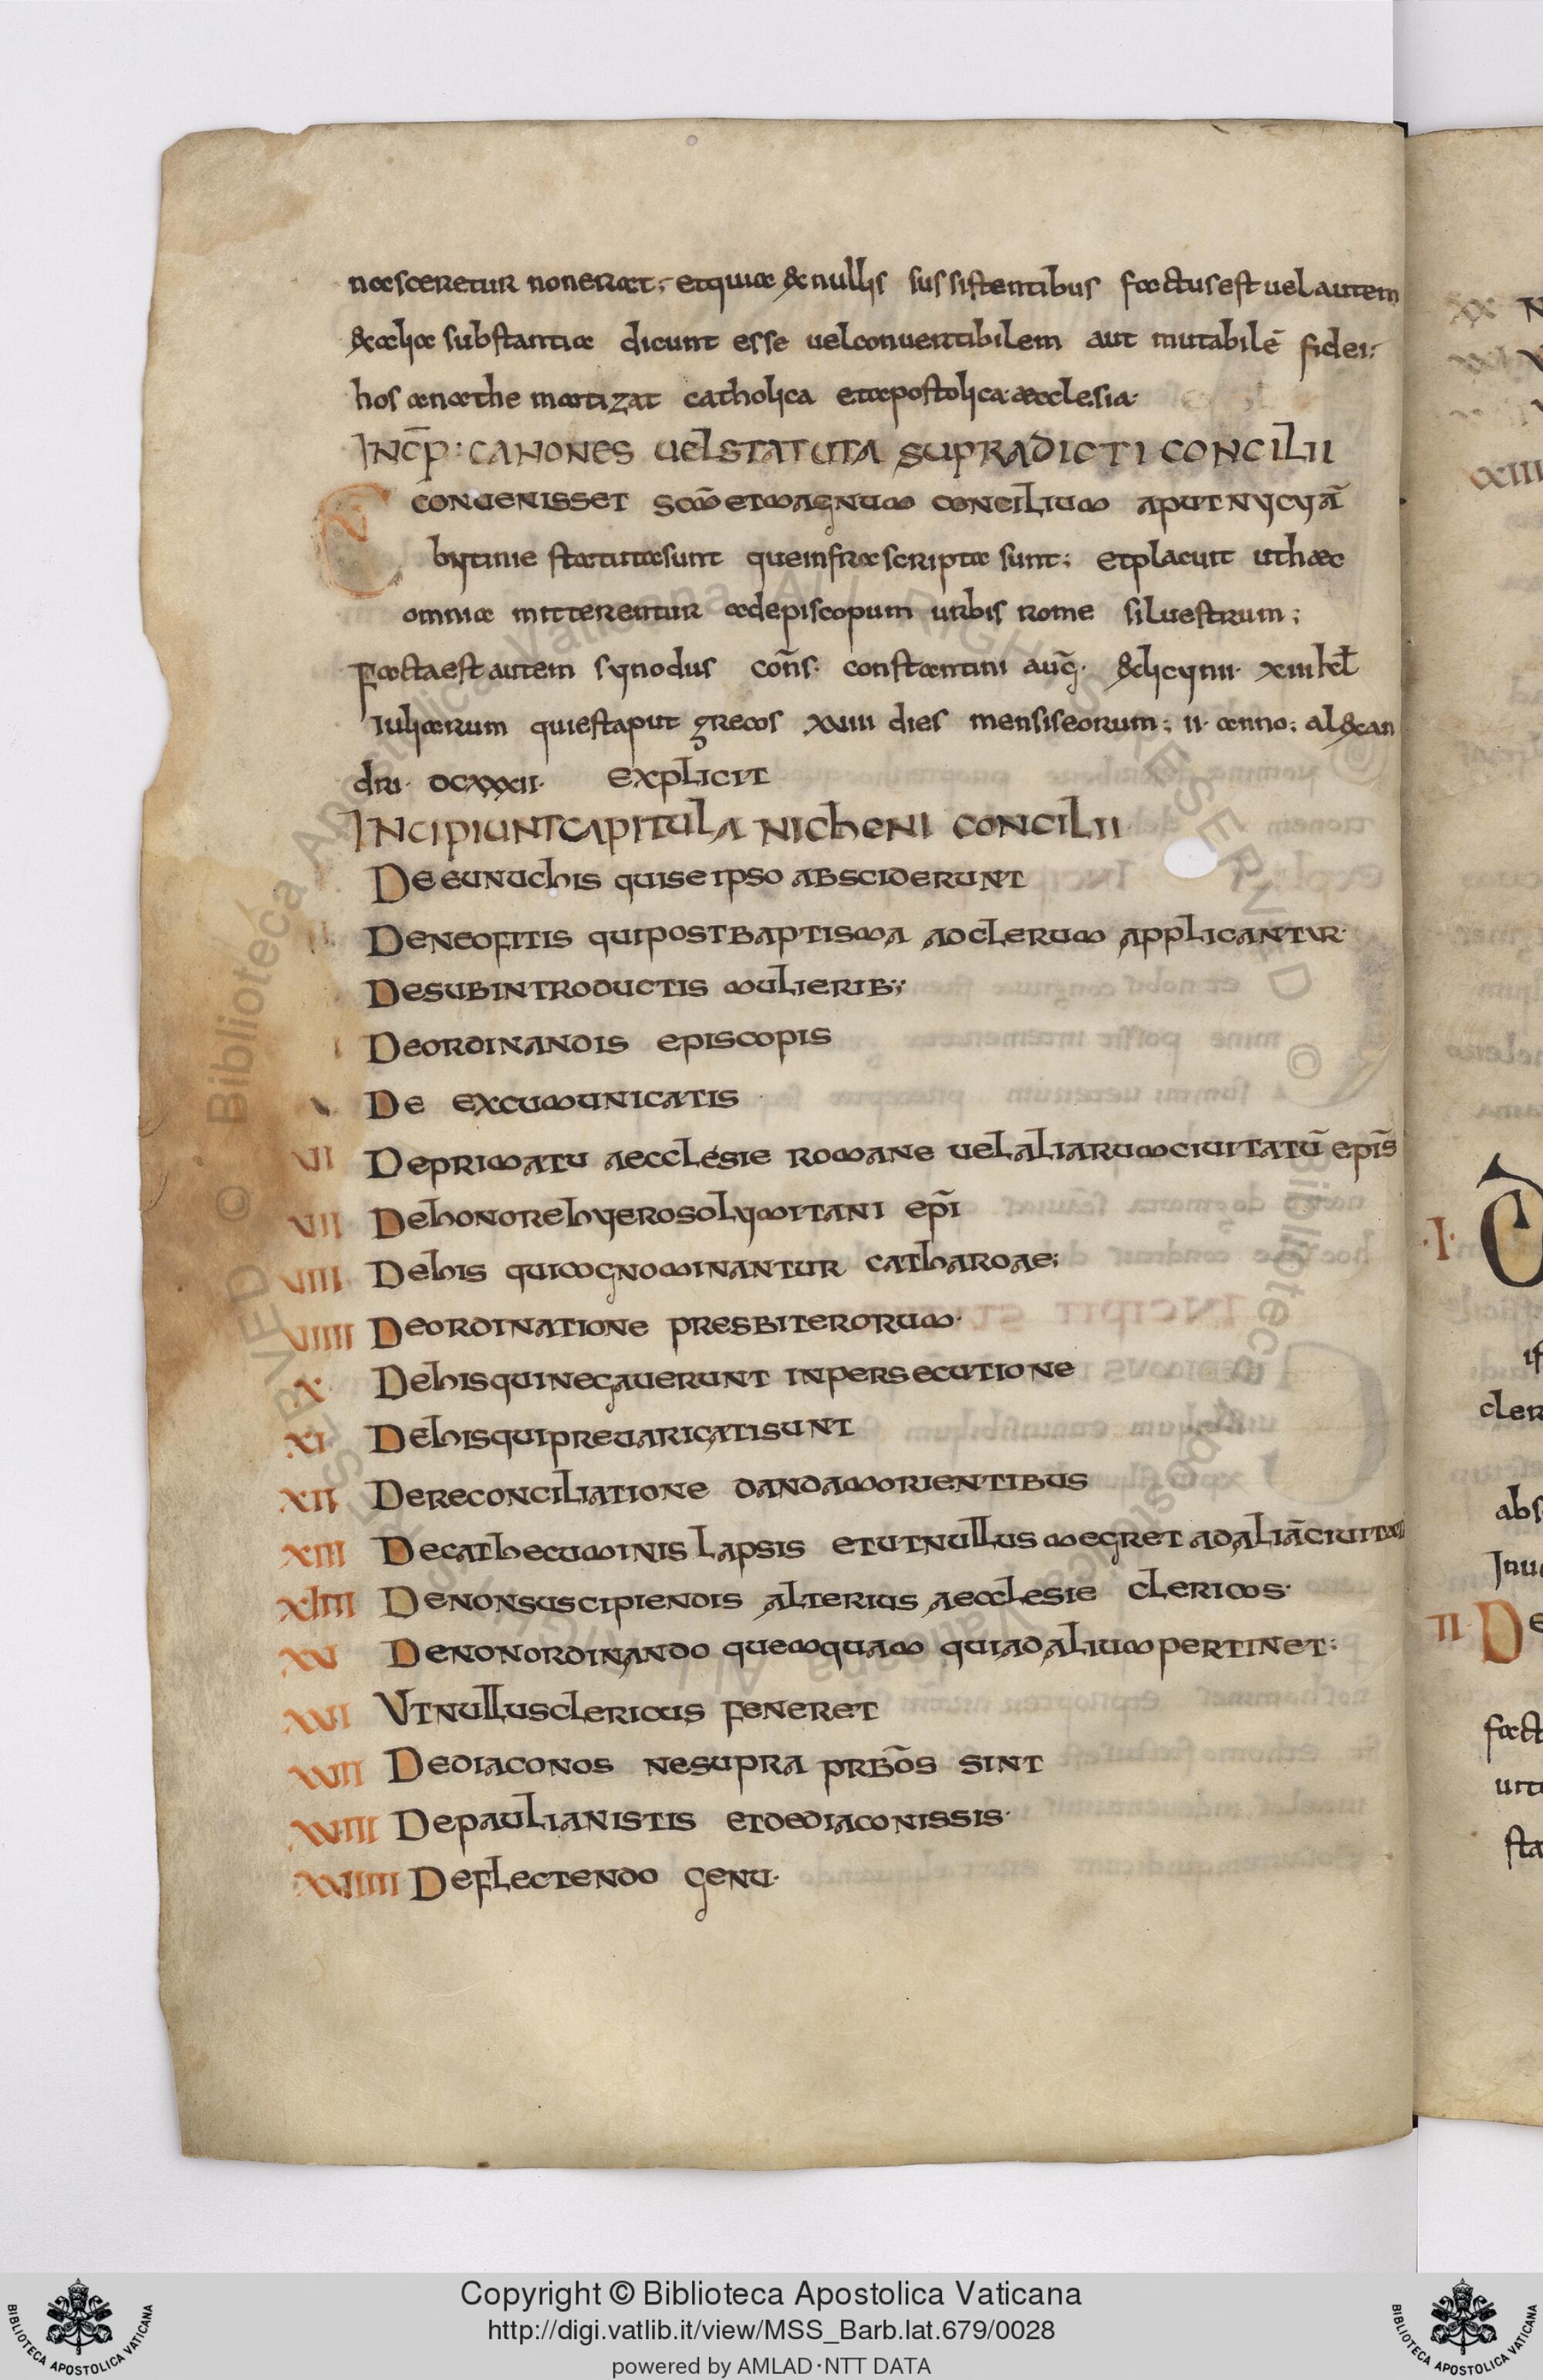 nasceretur non erat; et quia & nullis sussistentibus factus est uel autem
& alia substantia dicunt esse uel conuentibilem aut mutabilē fidei;
hos anathematizat catholica et apostolica aecclesia·
INCP̄: CANONES UEL STATUTA SUPRADICTI CONCILII
CONUENISSET SCM̄ ET MAGNUM CONCILIUM APUT NYCYĀ
bytinie statuta sunt que infra scripta sunt; et placuit ut haec
omnia mitterentur ad episcopum urbis rome siluestrum;
Facta est autem synodus con̄s· constantini auḡ· & licynii· xiii kł
Iuliarum qui est aput grecos xuiiii dies mensis eorum; ii· anno; al&can
dri· DCXXXII· EXPLICIT
INCIPIUNT CAPITULA NICHENI CONCILII
DE EUNUCHIS QUI SE IPSO ABSCIDERUNT
DE NEOFITIS QUI POST BAPTISMA AD CLERUM APPLICANTUR·
DE SUBINTRODUCTIS MULIERIB;
DE ORDINANDIS EPISCOPIS
DE EXCUMUNICATIS
VI DE PRIMATU AECCLESIE ROMANE UEL ALIARUM CIUITATŪ EPĪS
VII DE HONORE HYEROSOLYMITANI EPĪ
VIII DE HIS QUI COGNOMINANTUR CATHAROAE;
VIIII DE ORDINATIONE PRESBITERORUM·
X DE HIS QUI NEGAUERUNT IN PERSECUTIONE
XI DE HIS QUI PREUARICATI SUNT
XII DE RECONCILIATIONE DANDA MORIENTIBUS
XIII DE CATHECUMINIS LAPSIS ET UT NULLUS MEGRET AD ALIĀ CIUITAT
XIIII DE NON SUSCIPIENDIS ALTERIUS AECCLESIE CLERICOS·
XV DE NON ORDINANDO QUEMQUAM QUI AD ALIUM PERTINET;
XVI UT NULLUS CLERICUS FENERET
XVII DE DIACONOS NE SUPRA PRBŌS SINT
XVIII DE PAULIANISTIS ET DE DIACONISSIS·
XVIIII DE FLECTENDO GENU·
·I·
cler
abs
II· De
fact
Copyright © Biblioteca Apostolica Vaticana
http://digi.vatlib.it/view/MSS_Barb.lat.679/0028
powered by AMLAD·NTT DATA
BIBLIOTECA APOSTOLICA VATICANA
BIBLIOTECA APOSTOLICA VATICANA